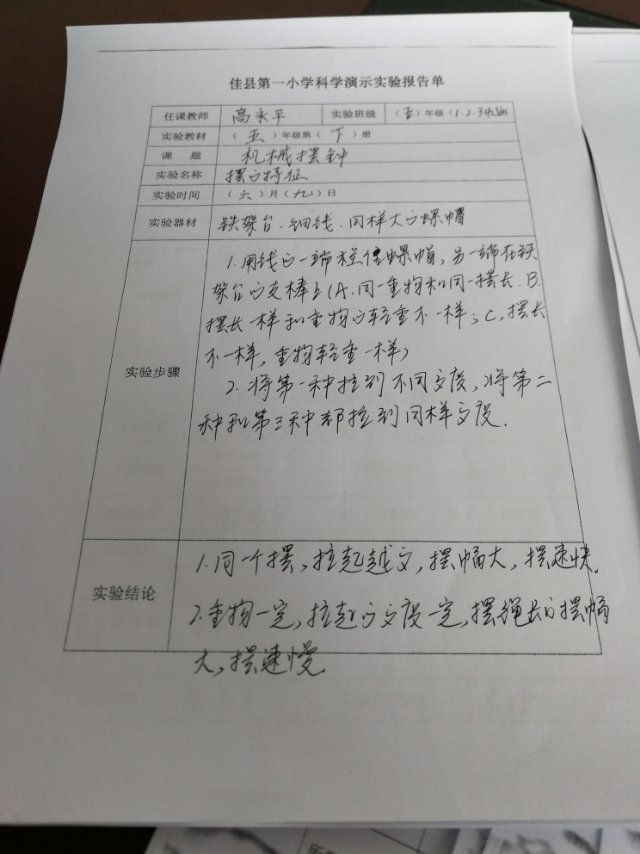 佳县第一小学科学演示实验报告单
任课教师 高永平 实验班级 (五)年级(1.2.3.4)班
实验教材 (五)年级第(下)册
课 题 机械摆钟
实验名称 摆的特征
实验时间 (六)月(九)日
实验器材 铁架台、细线、同样大的螺帽
实验步骤
1.用线的一端栓住螺帽,另一端在铁
架台的支棒上(A.同一重物和同一摆长.B.
摆长一样和重物的轻重不一样;C,摆长
不一样,重物轻重一样)
2.将第一种拉到不同高度,将第二
种和第三种都拉到同样高度.
实验结论
1.同一个摆,拉起越高,摆幅大,摆速快.
2.重物一定,拉起的高度一定,摆绳长的摆幅
大,摆速慢